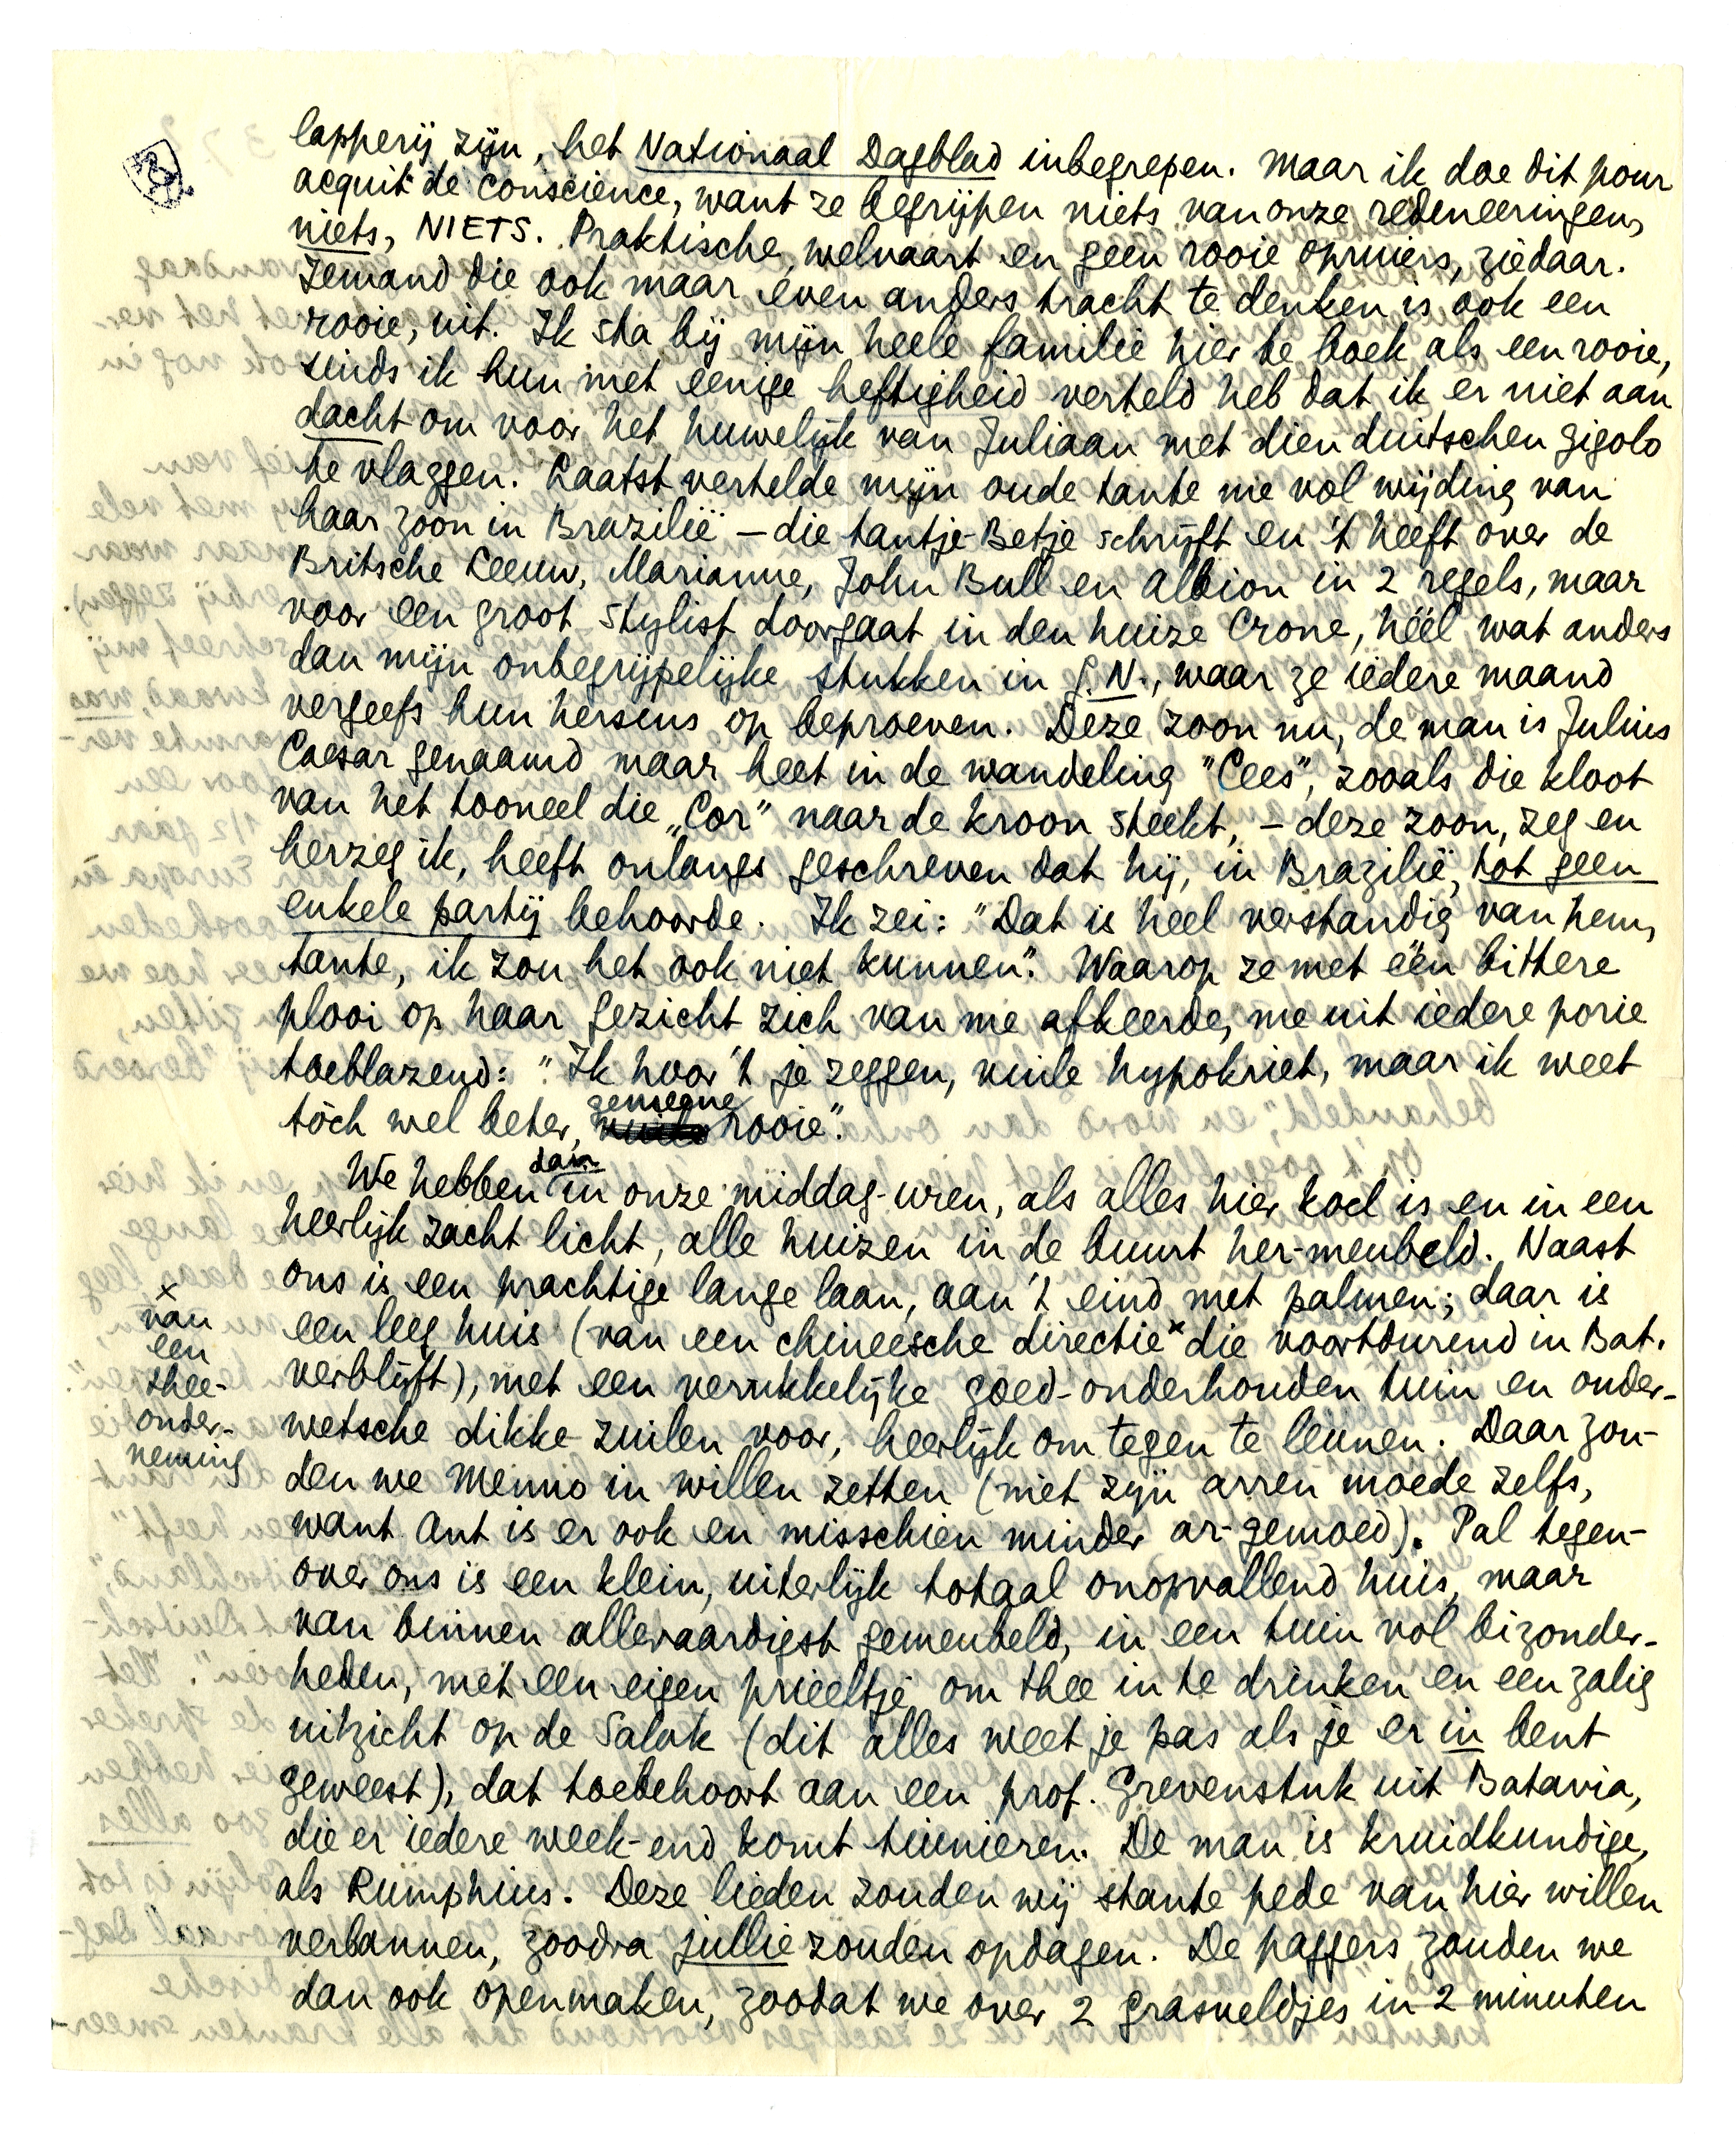 lapperij zijn, het Nationaal Dagblad inbegrepen. Maar ik doe dit pour
acquit de conscience, want ze begrijpen niets van onze redeneeringen,
niets, NIETS. Praktische welvaart en geen rooie opruiers, ziedaar.
Iemand die ook maar even anders tracht te denken is ook een
rooie, uit. Ik sta bij mijn heele familie hier te boek als een rooie,
sinds ik hun met eenige heftigheid verteld heb dat ik er niet aan
dacht om voor het huwelijk van Juliaan met dien duitschen gigolo
te vlaggen. Laatst vertelde mijn oude tante me vol wijding van
haar zoon in Brazilië – die tantje-Betje schrijft en 't heeft over de
Britsche Leeuw, Marianne, John Bull en Albion in 2 regels, maar
voor een groot stylist doorgaat in den huize Crone, héél wat anders
dan mijn onbegrijpelijke stukken in G.N., waar ze iedere maand
vergeefs hun hersens op beproeven. Deze zoon nu, de man is Julius
Caesar genaamd maar heet in de wandeling "Cees", zooals die kloot
van het tooneel die "Cor" naar de kroon steekt, – deze zoon, zeg en
herzeg ik, heeft onlangs geschreven dat hij, in Brazilië, tot geen
enkele partij behoorde. Ik zei: "Dat is heel verstandig van hem,
tante, ik zou het ook niet kunnen". Waarop ze met één bittere
plooi op haar gezicht zich van me afkeerde, me uit iedere porie
toeblazend: "Ik hoor 't je zeggen, vuile hypokriet, maar ik weet
tòch wel beter, gemeene rooie".
We hebben dan in onze middag-uren, als alles hier koel is en in een
heerlijk zacht licht, alle huizen in de buurt her-meubeld. Naast
ons is een prachtige lange laan, aan 't eind met palmen; daar is
een leeg huis (van een chineesche directie x die voortdurend in Bat.
x van
een
thee-
onder-
neming
verblijft), met een verukkelijke goed-onderhouden tuin en ouder-
wetsche dikke zuilen voor, heerlijk om tegen te leunen. Daar zou-
den we Menno in willen zetten (met zijn arren moede zelfs,
want Ant is er ook en misschien minder ar-gemoed). Pal tegen-
over ons is een klein, uiterlijk totaal onopvallend huis, maar
van binnen alleraardigst gemeubeld, in een tuin vol bizonder-
heden, met een eigen prieeltje om thee in te drinken en een zalig
uitzicht op de Salak (dit alles weet je pas als je er in bent
geweest), dat toebehoort aan een prof. Grevenstuk uit Batavia,
die er iedere week-end komt tuinieren. De man is kruidkundige,
als Rumphius. Deze lieden zouden wij stante pede van hier willen
verbannen, zoodra jullie zouden opdagen. De paggers zouden we
dan ook openmaken, zoodat we over 2 grasveldjes in 2 minuten